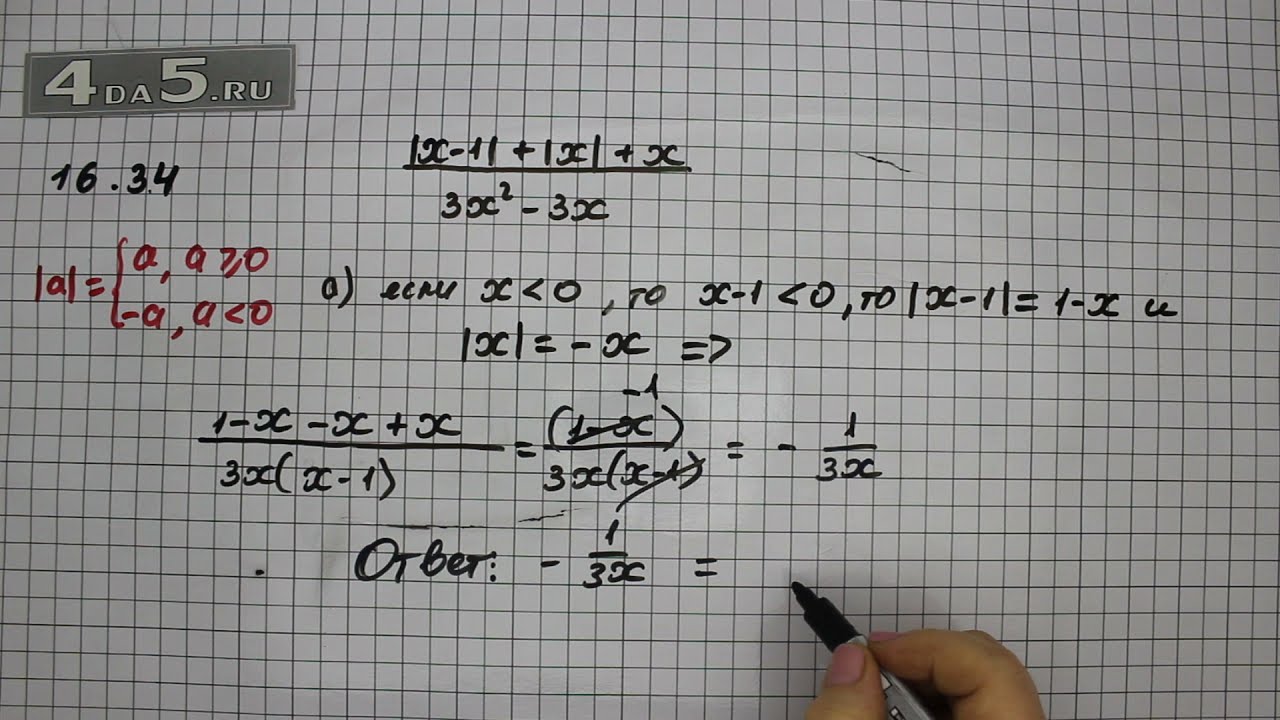 4DA5.RU
16.34
|x-1| + |x| + x
3x² - 3x
|a| = { a, a ≥ 0
-a, a < 0
а) если x < 0, то x-1 < 0, то |x-1| = 1-x и
|x| = -x =>
-1
1-x -x + x = (1-x) = - 1
3x(x-1) 3x(x-1) 3x
Ответ: - 1/3x =